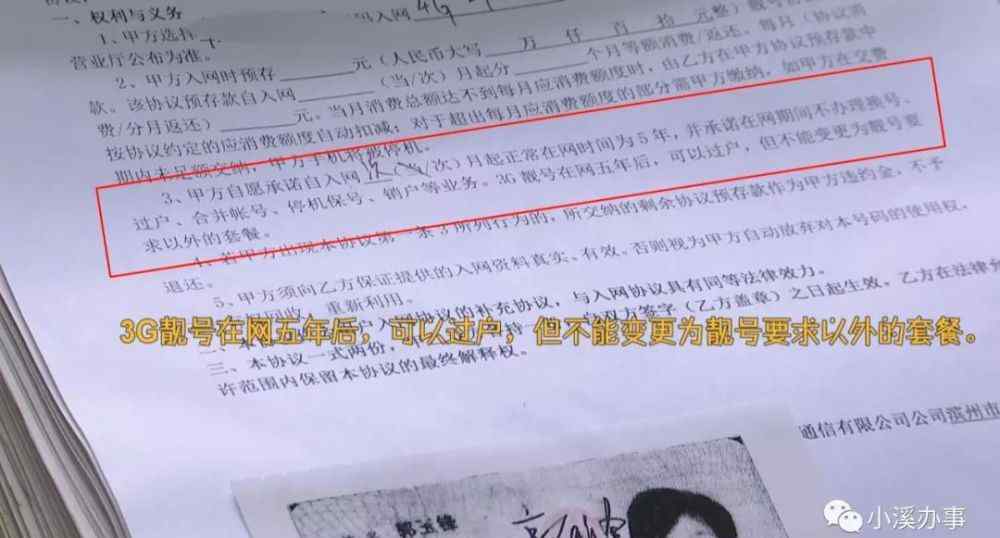 一、权利与义务
1、甲方选择 入网 4G
营业厅公布为准。
2、甲方入网时预存 元（人民币大写 万 仟 百 拾 元整）靓号
款。该协议预存款自入网 （当/次）月起分 个月等额消费/返还。每月（协议消
费/分月返还） 元。当月消费总额达不到每月应消费额度时，由乙方在甲方协议预存款中
按协议约定的应消费额度自动扣减；对于超出每月应消费额度的部分需甲方缴纳，如甲方在交费
期内未足额交纳，甲方手机将被停机。
3、甲方自愿承诺自入网 次（当/次）月起正常在网时间为 5 年，并承诺在网期间不办理换号、
过户、合并帐号、停机保号、销户等业务。3G 靓号在网五年后，可以过户，但不能变更为靓号要
求以外的套餐。
4、若甲方出现本协议第一条 3 所列行为的，所交纳的剩余协议预存款作为甲方违约金，不予
退还。
5、甲方须向乙方保证提供的入网资料真实、有效。否则视为甲方自动放弃对本号码的使用权，
回收、重新利用。
二、本 入网协议的补充协议，与入网协议具有同等法律效力。
3G靓号在网五年后，可以过户，但不能变更为靓号要求以外的套餐。
三、本协议一式两份， 持一 双方签字（乙方盖章）之日起生效。乙方在法律允
许范围内保留本协议的最终解释权。
通信有限公司公司滨州市
郭玉锋
小溪办事